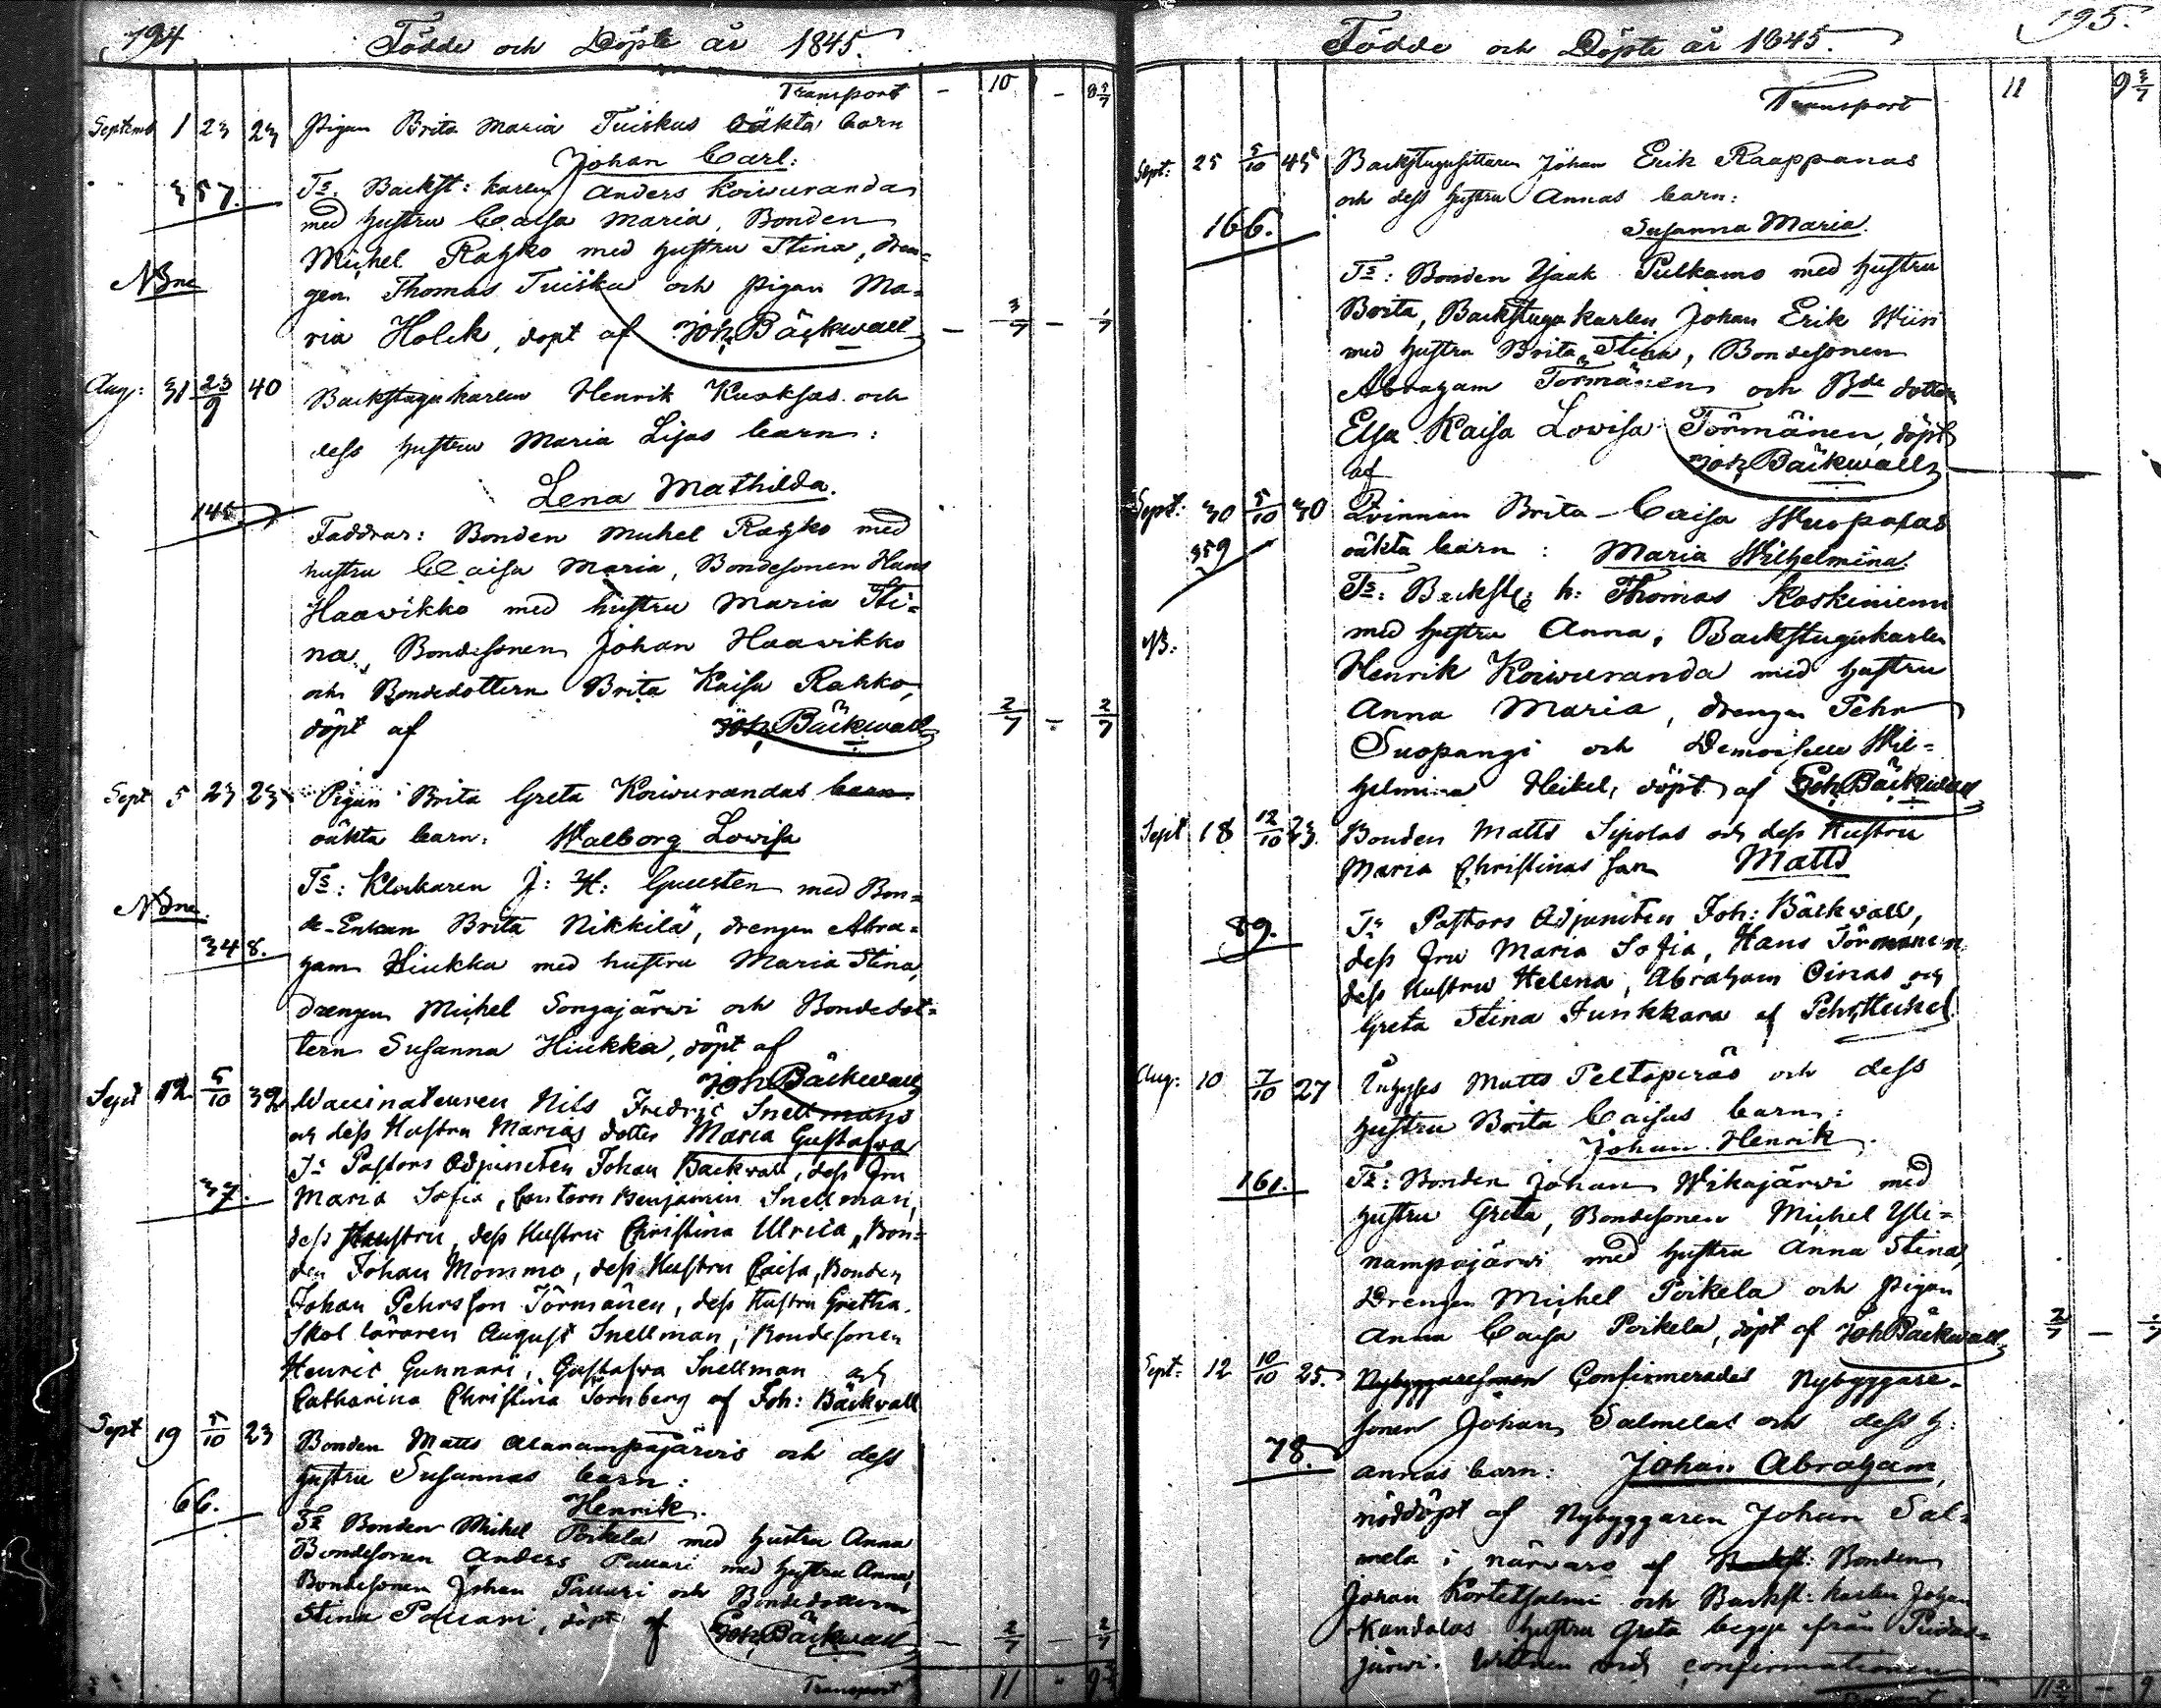 194
Födde och Döpte år 1845.
Transport - 10 - 8 5/7
Septemb 1 23 23 Pigan Brita Maria Tuiskus oäkta barn
Johan Carl:
357. Ts. Backst: karlen Anders Koiwuranda
med hustru Caisa Maria, Bonden
Michel Rahko med hustru Stina, dren=
NB
gen Thomas Tuisku och pigan Ma=
ria Holck, döpt af Joh Bäckwall - 3/7 - 1/7
Aug: 31 23/9 40 Backstugukarlen Henrik Kuoksas och
dess hustru Maria Lisas barn:
Lena Mathilda.
145
Faddrar: Bonden Michel Rahko med
hustru Caisa Maria, Bondesonen Hans
Haawikko med hustru Maria Sti=
na, Bondesonen Johan Haawikko
och Bondedottern Brita Kaisa Rahko,
döpt af Joh Bäckwall 2/7 - 2/7
Sept 5 23 23 Pigan Brita Greta Koiwurandas barn
oäkta barn: Walborg Lowisa
Ts: Klockaren J: H: Gueesten med Bon=
de-Enkan Brita Nikkilä, drengen Abra=
348.
ham Hiukka med hustru Maria Stina,
drengen Michel Songajärwi och Bondedot=
tern Susanna Hiukka, döpt af
Joh Bäckwall
Sept 12 5/10 32 Waccinateuren Nils Fredric Snellmans
och dess Hustru Marias dotter Maria Gustafwa
Ts Pastors Adjuncten Johan Backvall, dess fru
37. Maria Sofia, Cantorn Benjamin Snellman,
dess Haustru, dess Hustru Christina Ulrica, Bon=
den Johan Mommo, dess Hustru Caisa, Bonden
Johan Pehrsson Törmänen, dess Hustru Gretha.
Skol läraren August Snellman, Bondesonen
Henric Gunnari, Gustafva Snellman och
Catharina Christina Törnberg af Joh: Bäckvall
Sept 19 5/10 23 Bonden Matts Alanampajärwis och dess
hustru Susannas barn:
66. Henrik.
Ts Bonden Mihel Poikela med hustru Anna
Bondesonen Anders Pauari med hustru Anna,
Bondesonen Johan Pauari och Bondedottern
Stina Pauari, döpt af Joh Bäckwall - 2/7 - 2/7
Transport 11 " 9 3/7
195.
Födde och Döpte år 1845.
Transport 11 9 3/7
Sept: 25 5/10 45 Backstugusittaren Johan Erik Raappanas
och dess hustru Annas barn:
166. Susanna Maria.
Ts: Bonden Isaak Pulkamo med hustru
Brita, Backstugukarlen Johan Erik Wiiri
med hustru Brita Stina, Bondesonen
Abraham Törmänen och Bde dottern
Elsa Kaisa Lowisa Törmänen, döpt
af Joh Bäckwall
Sept: 30 5/10 30 Qvinnan Brita Caisa Wuopajas
359 oäkta barn: Maria Wilhelmina.
Ts: Backst: k: Thomas Koskiniemi
NB. med hustru Anna, Backstugukarlen
Henrik Koiwuranda med hustru
Anna Maria, drengen Pehr
Suopangi och Demoiselle Wil=
helmina Heikel, döpt af Joh Bäckwall
Sept 18 12/10 23. Bonden Matts Sipolas och dess Hustru
Maria Christinas son Matts
89. Ts Pastors Adjuncten Joh: Bäckvall,
dess fru Maria Sofia, Hans Törmänen
dess Hustru Helena, Abraham Oinas och
Greta Stina Junkkara af Pehr Heikel
Aug: 10 7/10 27 Inhyses Matts Peltoperäs och dess
hustru Brita Caisas barn:
Johan Henrik.
161. Ts: Bonden Johan Wikajärwi med
hustru Greta, Bondesonen Michel Yli=
nampajärwi med hustru Anna Stina,
Drengen Michel Poikela och pigan
Anna Caisa Poikela, döpt af Joh Bäckwall 2/7 -
Sept: 12 10/10 25. Nybyggaresonen Confirmerades Nybyggare-
sonen Johan Salmelas och dess h:
78. Annas barn: Johan Abraham,
nöddöpt af Nybyggaren Johan Sal=
mela i närvaro af Backst: Bonden
Johan Kortetsalmi och Backst: karlen Johan
Kandolas hustru Greta begge från Pudas=
järwi. Wittnen vid confirmationen